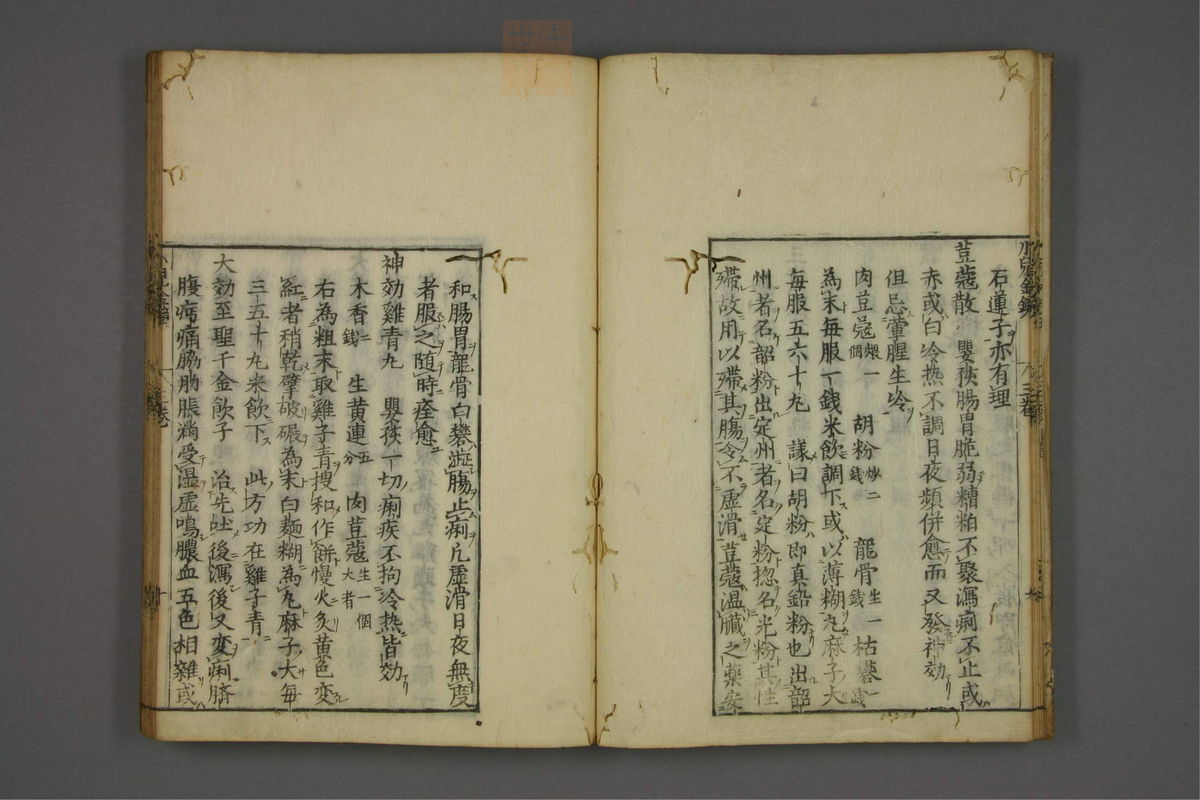 石蓮子亦有理
荳蔻散　嬰孩腸胃脆弱糟粕不聚瀉痢不止或
赤或白冷熱不調日夜頻併愈而又發神効
但忌葷腥生冷
肉荳蔻煨一個　胡粉炒二錢　龍骨生一錢　枯礬一錢
為末每服一錢米飲調下或以薄糊丸麻子大
每服五六十丸　議曰胡粉即真鉛粉也出韶
州者名韶粉出定州者名定粉揔名光粉其性
殢故用以殢其腸令不虛滑荳蔻温臟之藥安
和腸胃龍骨白礬澁腸止痢凢虛滑日夜無度
者服之随時痊愈
神効雞青丸　嬰孩一切痢疾不拘冷热皆効
木香二錢　生黄連五分　肉荳蔻生一個大者
右為粗末取雞子青搜和作餅慢火炙黄色変
紅者稍乾擘破碾為末白麵糊為丸麻子大每
三五十丸米飲下　此方功在雞子青
大効至聖千金飲子　治先吐後瀉後又変痢臍
腹疞痛脇肋脹満受湿虛鳴膿血五色相雜或